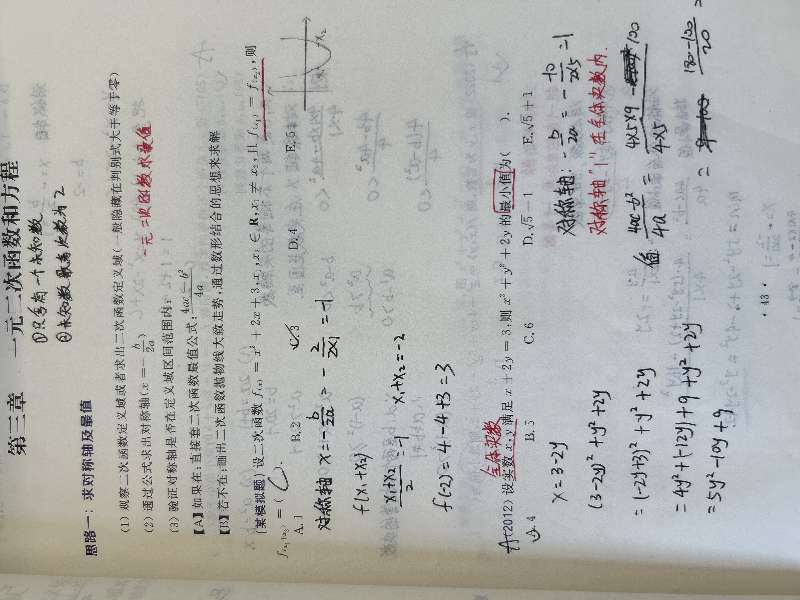 第三章 一元二次函数和方程
①只含有一个未知数
②未知数最高次数为2
思路一：求对称轴及最值
(1) 观察二次函数定义域或者求出二次函数定义域(一般隐藏在判别式大于等于零)
(2) 通过公式求出对称轴(x=-b/2a)
一元二次函数求最值
(3) 验证对称轴是否在定义域区间范围内：
【A】如果在：直接套二次函数最值公式：4ac-b²/4a
【B】若不在：画出二次函数抛物线大致走势，通过数形结合的思想来求解
(某模拟题) 设二次函数 f(x)=x²+2x+3, x₁,x₂∈R, x₁≠x₂, 且 f(x₁)=f(x₂), 则
f(x₁+x₂)=( C ).
A. 1 B. 2 C. 3 D. 4 E. 5
对称轴 x=-b/2a=-2/2×1=-1
f(x₁+x₂)
x₁+x₂/2=-1 x₁+x₂=-2
f(-2)=4-4+3=3
全体实数
(2012) 设实数 x,y 满足 x+2y=3, 则 x²+y²+2y 的最小值为( ).
A. 4 B. 5 C. 6 D. √5-1 E. √5+1
x=3-2y
(3-2y)²+y²+2y
=(-2y+3)²+y²+2y
=4y²+(-12y)+9+y²+2y
=5y²-10y+9
对称轴：-b/2a=-10/2×5=1
对称轴"1"在全体实数内.
值：4ac-b²/4a=4×5×9-100/4×5
=180-100/20=
· 43 ·